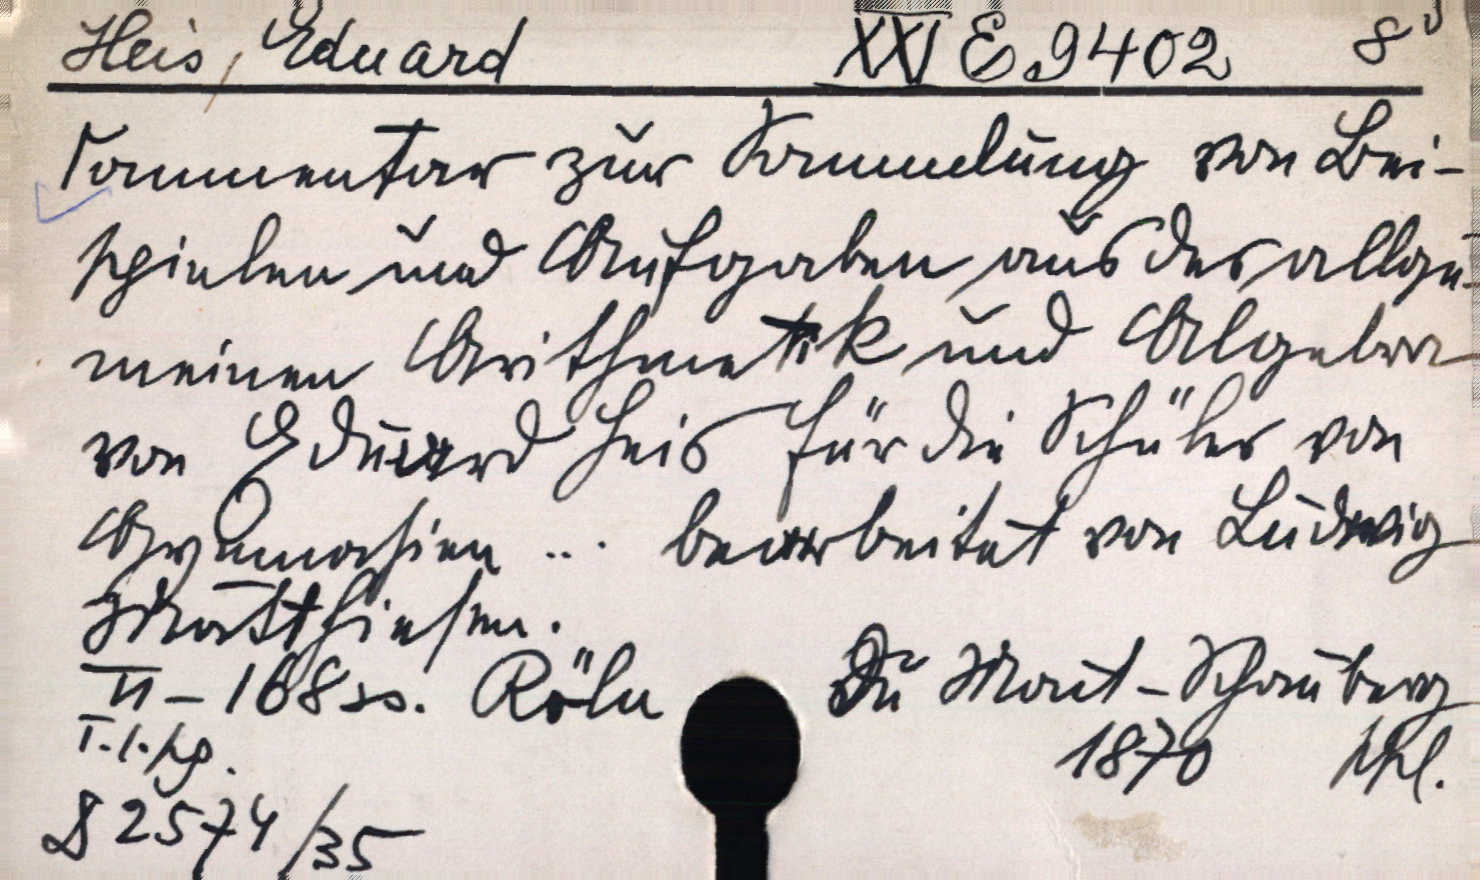 Heis, Eduard XXI E 9402 8°
Commentar zur Sammlung von Bei-
spielen und Aufgaben aus der allge-
meinen Arithmetik und Algebra
von Eduard Heis für die Schüler von
Gymnasien ... bearbeitet von Ludwig
Matthiessen.
II - 168 ss. Köln Du Mont-Schauberg
1870
D 2574/35